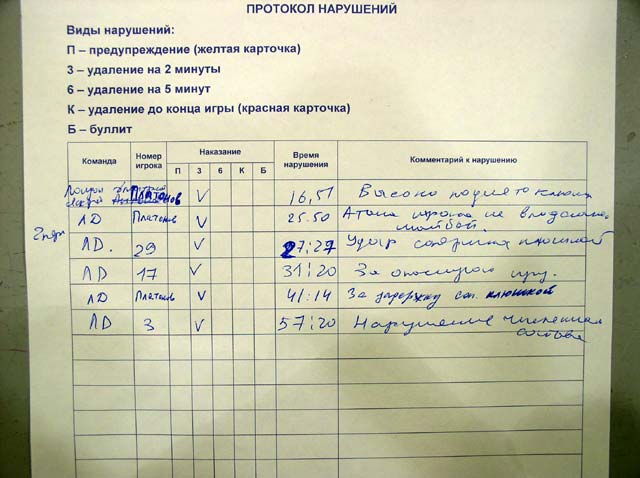 ПРОТОКОЛ НАРУШЕНИЙ
Виды нарушений:
П – предупреждение (желтая карточка)
3 – удаление на 2 минуты
6 – удаление на 5 минут
К – удаление до конца игры (красная карточка)
Б – буллит
Команда Номер игрока Наказание Время нарушения Комментарий к нарушению
П 3 6 К Б
Платонов V 16,51 Высоко поднята клюшка
ЛД Платонов V 25.50 Атака игрока не владеющего
шайбой.
2 пер ЛД. 29 V 27:27 Удар соперника клюшкой
ЛД 17 V 31:20 За опасную игру.
ЛД Платонов V 41:14 За задержку соп. клюшкой
ЛД 3 V 57:20 Нарушение численного
состава